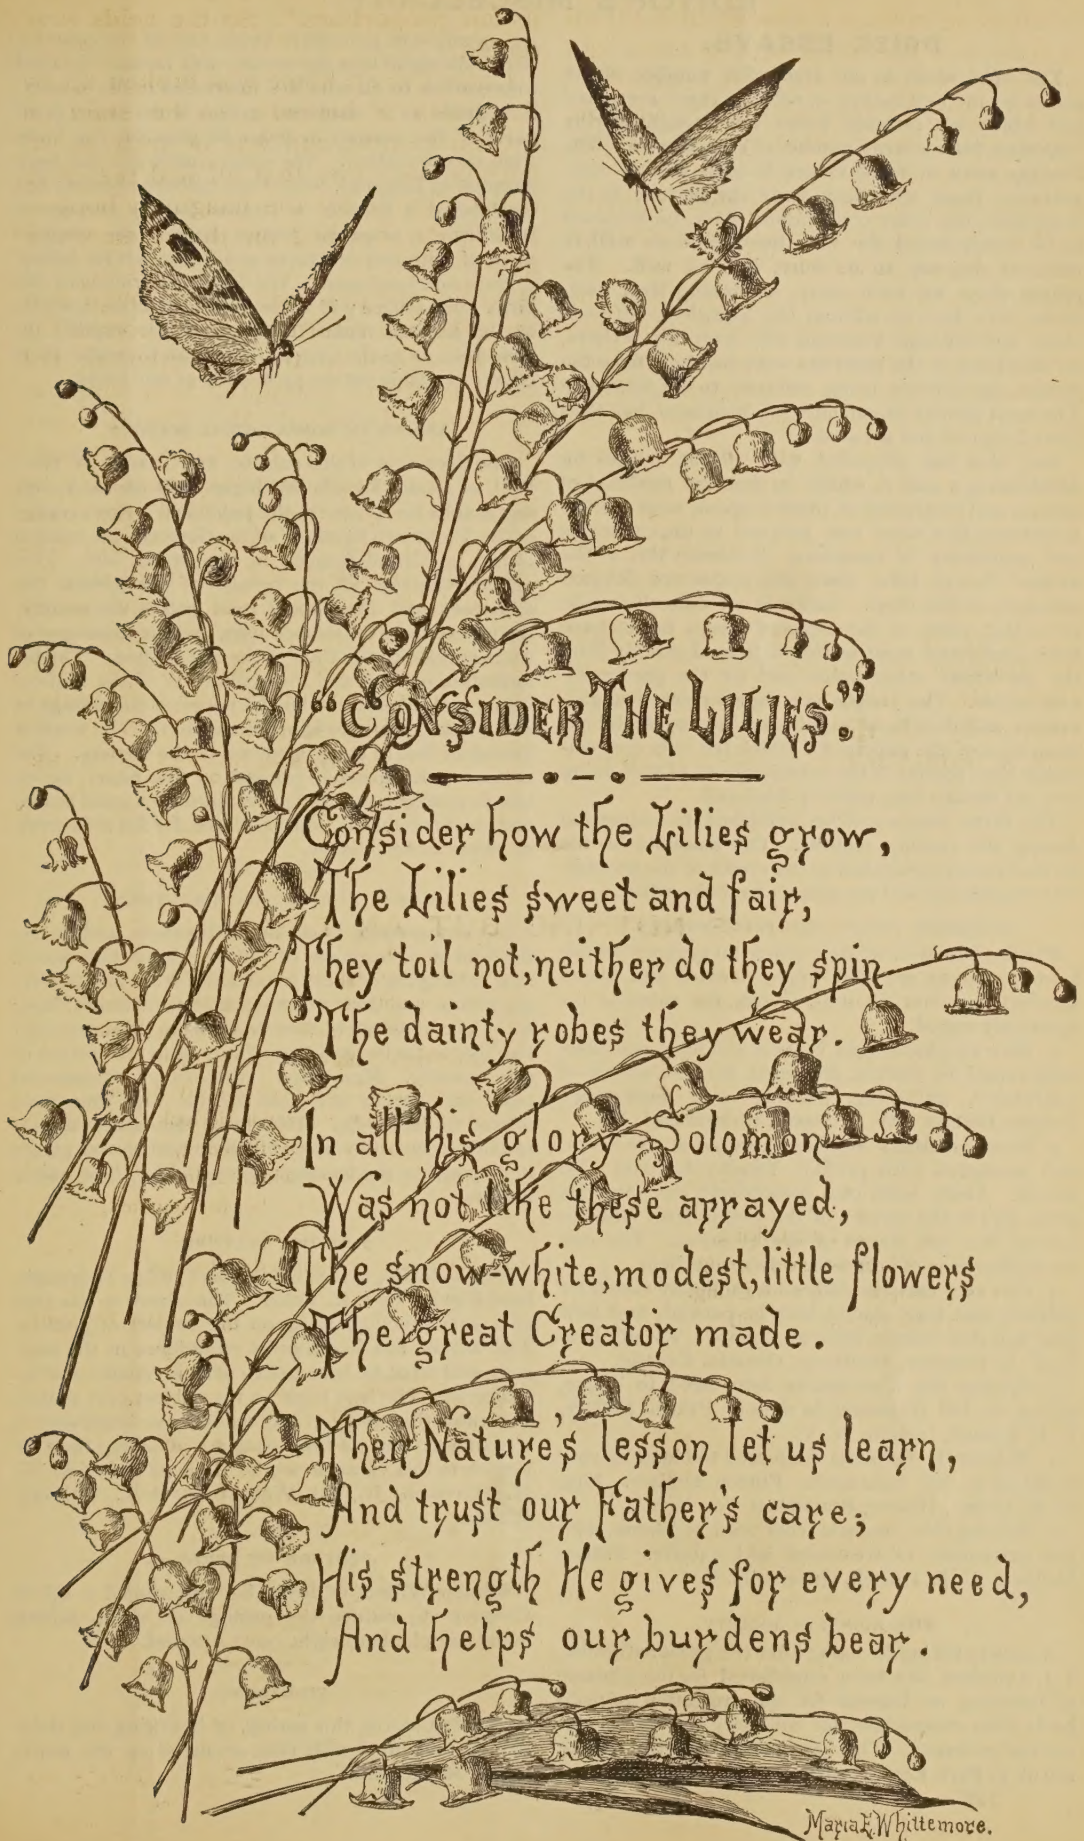 “CONSIDER THE LILIES.”
Consider how the Lilies grow,
The Lilies sweet and fair,
They toil not, neither do they spin
The dainty robes they wear.
In all his glory Solomon
Was not like these arrayed,
The snow-white, modest, little flowers
The great Creator made.
Then Nature's lesson let us learn,
And trust our Father's care;
His strength He gives for every need,
And helps our burdens bear.
Maria E. Whittemore.